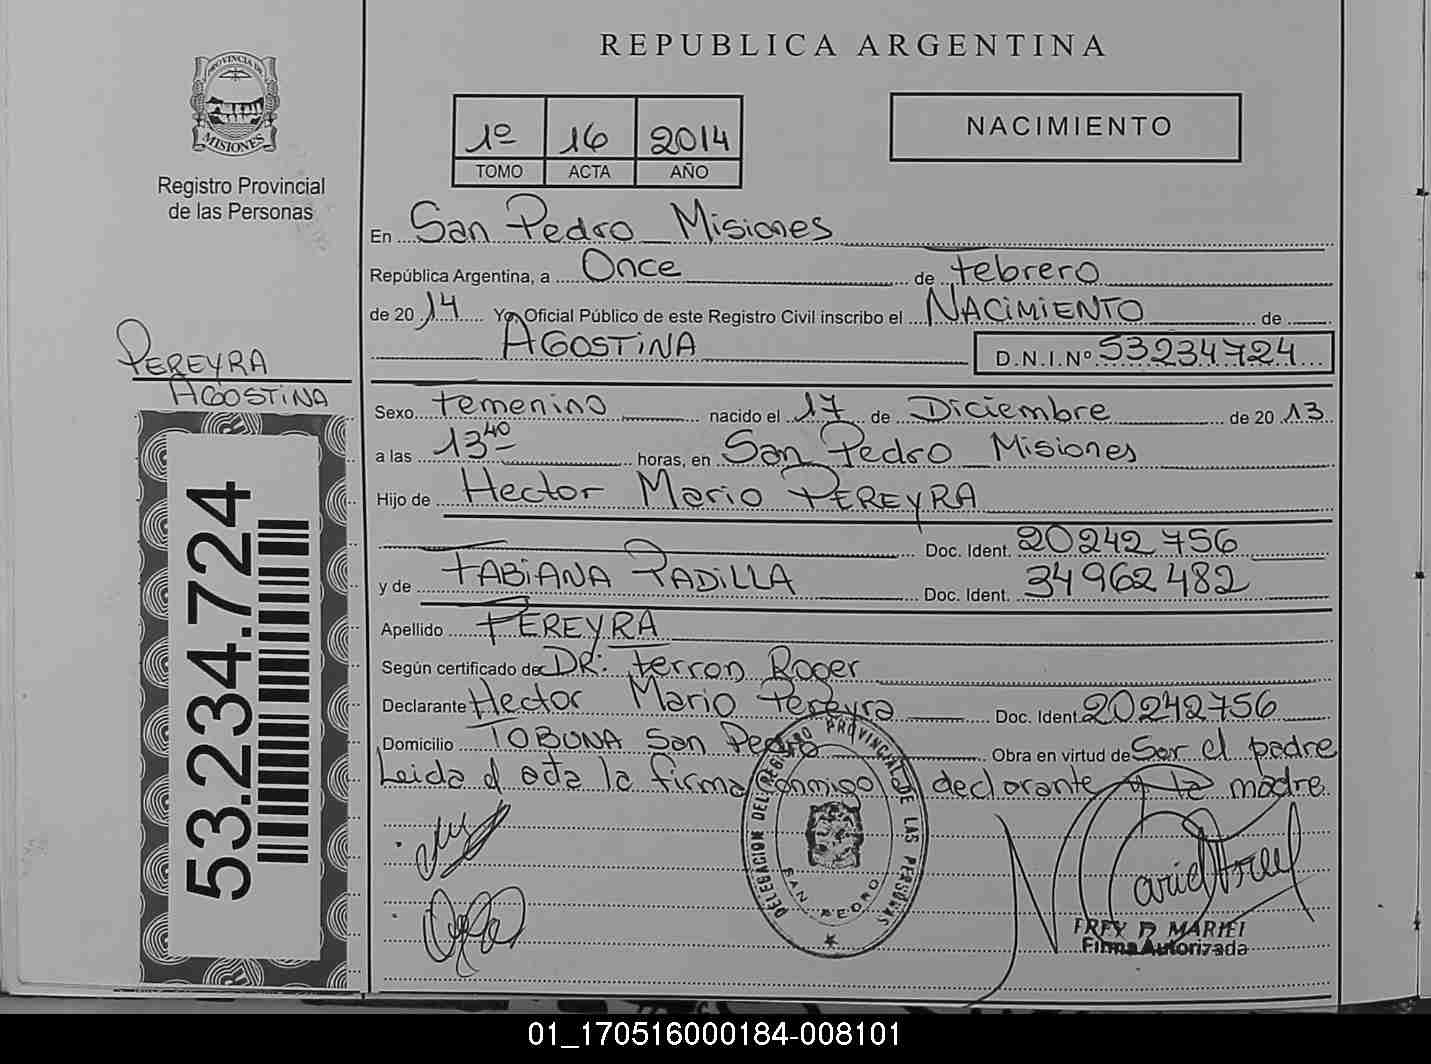 REPUBLICA ARGENTINA
PROVINCIA DE
MISIONES
Registro Provincial
de las Personas
1º 16 2014
TOMO ACTA AÑO
NACIMIENTO
En San Pedro Misiones
República Argentina, a Once de Febrero
de 20 14 Yo Oficial Público de este Registro Civil inscribo el NACIMIENTO de
AGOSTINA D.N.I.Nº 53234724
PEREYRA
AGOSTINA
53.234.724
Sexo Femenino nacido el 17 de Diciembre de 20 13
a las 13 40 horas, en San Pedro Misiones
Hijo de Hector Mario PEREYRA
Doc. Ident. 20242756
y de FABIANA PADILLA Doc. Ident. 34962482
Apellido PEREYRA
Según certificado de DR: Ferron Roger
Declarante Hector Mario Pereyra Doc. Ident. 20242756
Domicilio TOBUNA San Pedro Obra en virtud de Ser el padre
Leida el acta la firma conmigo el declarante y la madre.
DELEGACION DEL REGISTRO PROVINCIAL DE LAS PERSONAS
SAN PEDRO
FREY D. MARIEL
Firma Autorizada
01_170516000184-008101